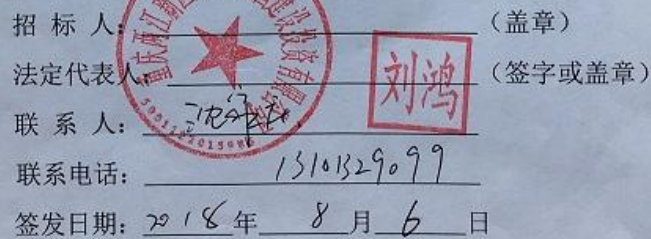 招 标 人: （盖章）
法定代表人: 刘鸿 （签字或盖章）
联 系 人: 沈
联系电话: 13101329099
签发日期: 2018 年 8 月 6 日